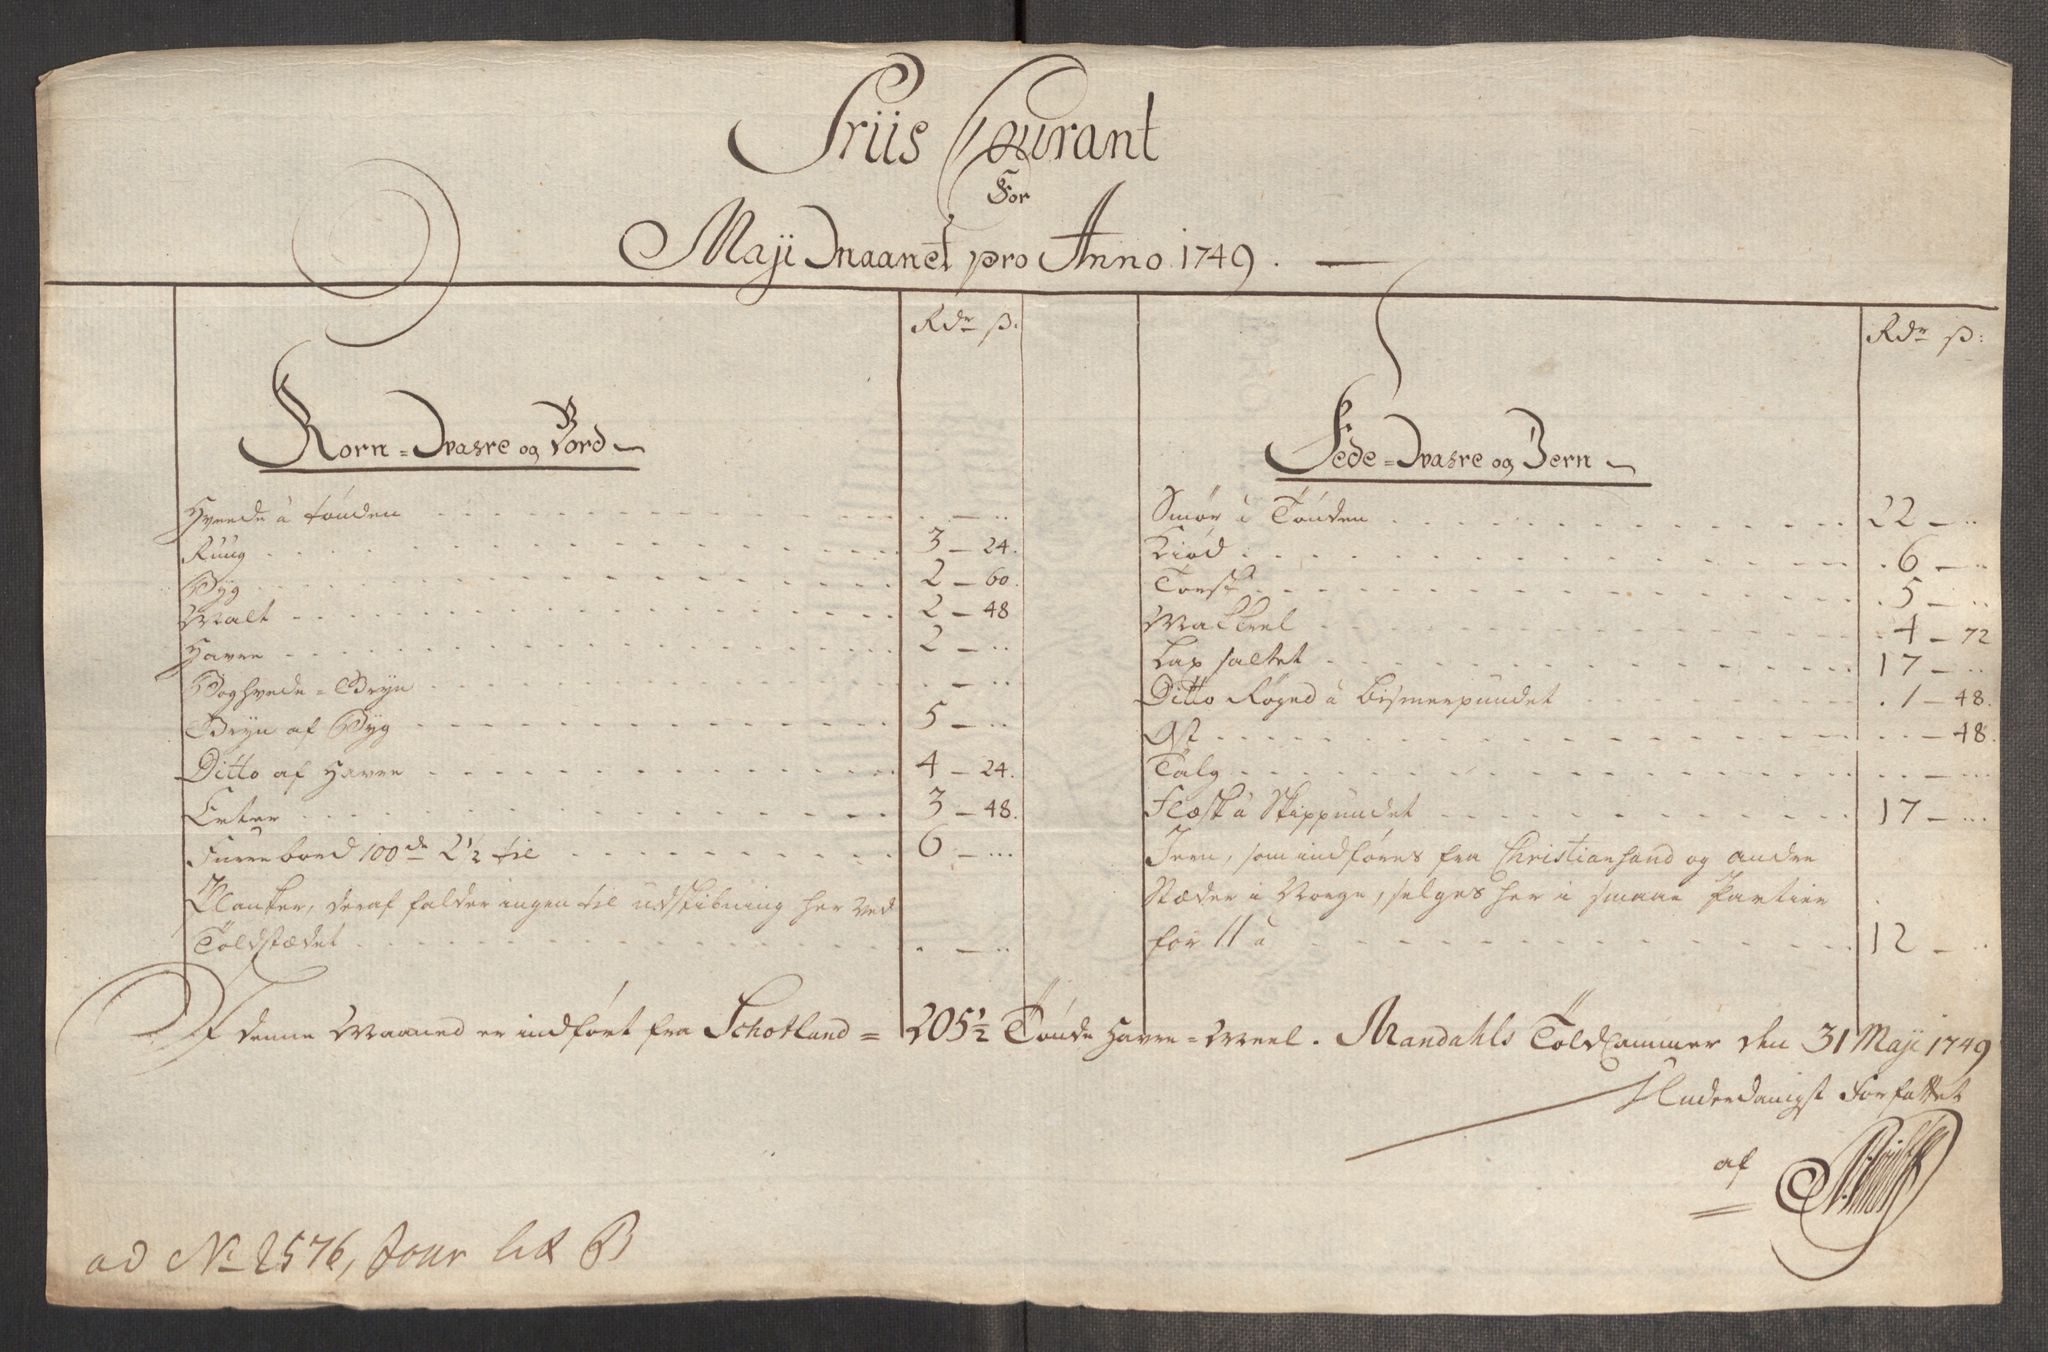 Priis Courant
For
Maji Maanet pro Anno 1749.
Rdr ß.
Korn=Vahre og Bord
Hveede à tønden - ..
Ruug 3 - 24.
Byg 2 - 60.
Malt 2 - 48
Havre 2 - ..
Boghvede=Gryn - ..
Gryn af Byg 5 - ..
Ditto af Havre 4 - 24.
Erter 3 - 48.
Furrebord 100de 2½ til 6 - ...
Planker, deraf falder ingen til udskibning her ved
Toldstædet . - ..
Rdr ß:
Fede=Vahre og Jern
Smør à Tønden 22 - ..
Kiød 6 - ..
Torsk 5 - ..
Makkrel 4 - 72
Lax saltet 17 - ..
Ditto Røged à Bismerpundet 1 - 48.
Ost .. - 48.
Talg .. - ...
Flæsk à Skippundet 17 - ...
Jern, som indføres fra Christiansand og andre
Stæder i Norge, selges her i smaae Partier
for ll à 12 - ..
I denne Maaned er indført fra Schotland = 205½ Tønde Havre=Meel. Mandahls Toldcammer den 31 Maji 1749
Underdanigst Forfattet
af
ad No 2576, Jour lit B